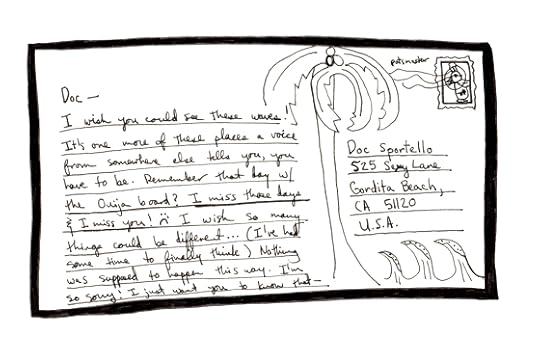 Doc —
I wish you could see these waves!
It's one more of these places a voice
from somewhere else tells you, you
have to be. Remember that day w/
the Ouija board? I miss those days
& I miss you! :( I wish so many
things could be different... (I've had
some time to finally think) Nothing
was supposed to happen this way. I'm
so sorry! I just want you to know that—
postmaster
Doc Sportello
525 Sexy Lane
Gordita Beach,
CA 51120
U.S.A.